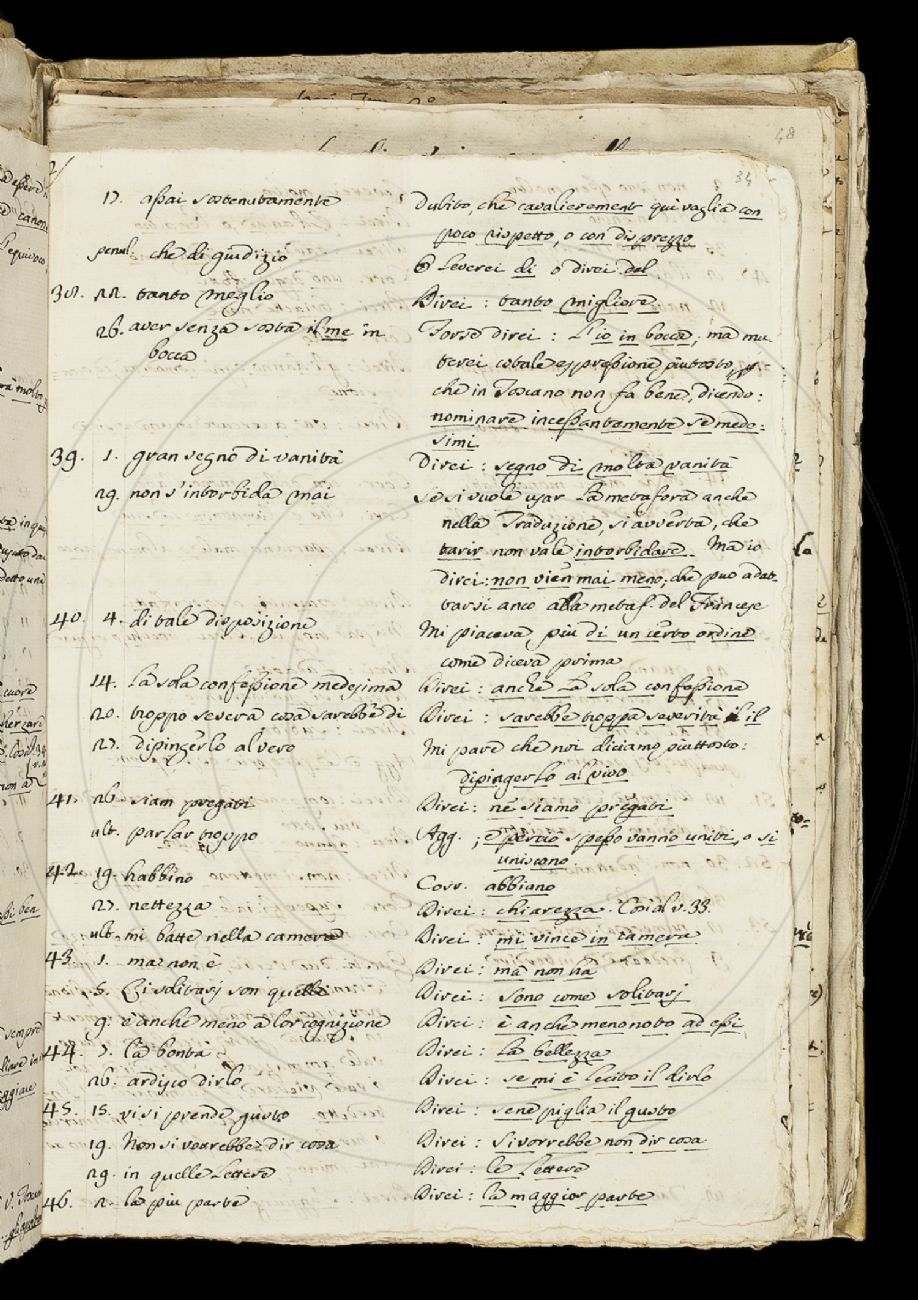 48
34
17. assai sostenutamente Dubito, che cavalieremente qui vaglia con
poco rispetto, o con disprezzo
penul: che di giudizio O leverei di o direi del
38. 22. tanto meglio Direi: tanto migliore.
26. aver senza sosta il me in Forse direi: L'io in bocca; ma mu
bocca terei cotale espressione piuttosto,
che in Toscano non fa bene, dicendo:
nominare incessantemente se mede:
simi
39. 1. gran segno di vanità Direi: segno di molta vanità
29. non s'intorbida mai Se si vuole usar la metafora anche
nella Traduzione, si avverta, che
tarir non vale intorbidare. Ma io
direi: non vien mai meno; che può adat-
tarsi anco alla metaf. del Francese
40. 4. di tale disposizione Mi piaceva più di un certo ordine
come diceva prima
14. la sola confessione medesima Direi: anche la sola confessione
20. troppo severa cosa sarebbe di Direi: sarebbe troppa severità il
27. dipingerlo al vero Mi pare che noi diciamo piuttosto:
dipingerlo al vivo
41. 26. siam pregati Direi: né siamo pregati
ult. parlar troppo Agg. ; e perciò spesso vanno uniti, o si
uniscono.
42. 19. habbino Corr. abbiano
27. nettezza Direi: chiarezza. Così al v. 33.
ult. mi batte nella camera Direi: mi vince in camera
43. 1. ma non è Direi: ma non ha
5. Ei solitarj son quelli Direi: sono come solitarj
9. è anche meno a lor cognizione Direi: è anche meno noto ad essi
44. 7. la bontà Direi: la bellezza
26. ardisco dirlo Direi: se mi è lecito il dirlo
45. 15. vi si prende gusto Direi: sene piglia il gusto
19. Non si vorrebbe dir cosa Direi: Si vorrebbe non dir cosa
29. in quelle Lettere Direi: le Lettere
46. 2. la più parte Direi: la maggior parte